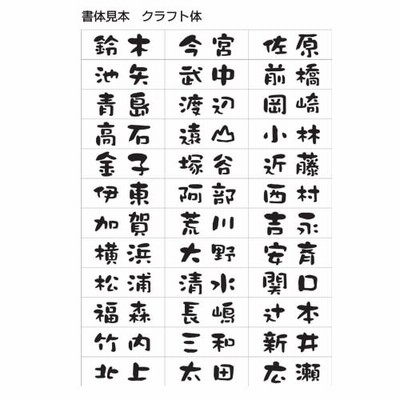 書体見本　クラフト体
鈴木　今宮　佐原
池矢　武中　前橋
青島　渡辺　岡崎
高石　遠山　小林
金子　塚谷　近藤
伊東　阿部　西村
加賀　荒川　吉永
横浜　大野　安斉
松浦　清水　関口
福森　長嶋　辻本
竹内　三和　新井
北上　太田　広瀬